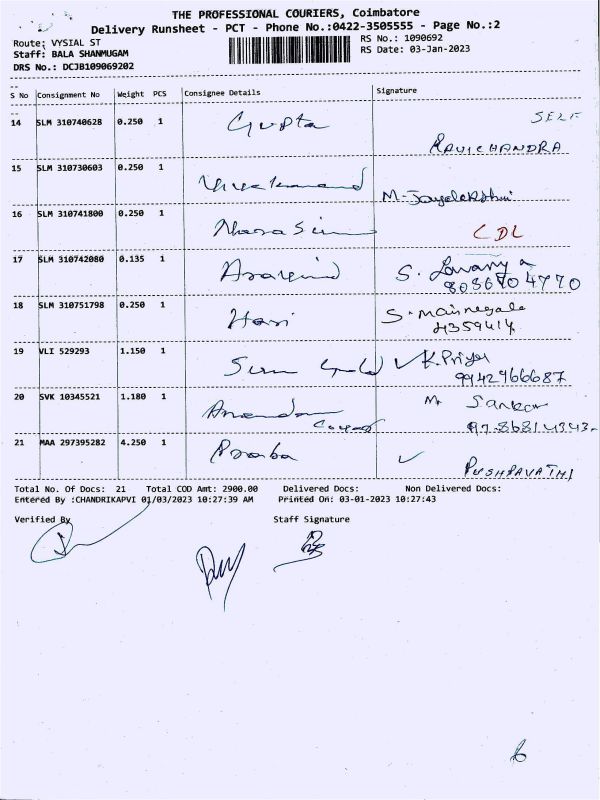 THE PROFESSIONAL COURIERS, Coimbatore
Delivery Runsheet - PCT - Phone No.:0422-3505555 - Page No.:2
Route: VYSIAL ST
RS No.: 1090692
Staff: BALA SHANMUGAM
RS Date: 03-Jan-2023
DRS No.: DCJB109069202
S No Consignment No Weight PCS Consignee Details Signature
14 SLM 310740628 0.250 1 Gupta SELF
RAVICHANDRA
15 SLM 310730603 0.250 1 Vivekanand M-Jayalakshmi
16 SLM 310741800 0.250 1 CDL
17 SLM 310742080 0.135 1 Aravind S. Lavanya
18 SLM 310751798 0.250 1 Hari S.
19 VLI 529293 1.150 1 K.Priya
9942966687
20 SVK 10345521 1.180 1 Sankar
21 MAA 297395282 4.250 1 PUSHPAVATHI
Total No. Of Docs: 21 Total COD Amt: 2900.00 Delivered Docs: Non Delivered Docs:
Entered By :CHANDRIKAPVI 01/03/2023 10:27:39 AM Printed On: 03-01-2023 10:27:43
Verified By Staff Signature